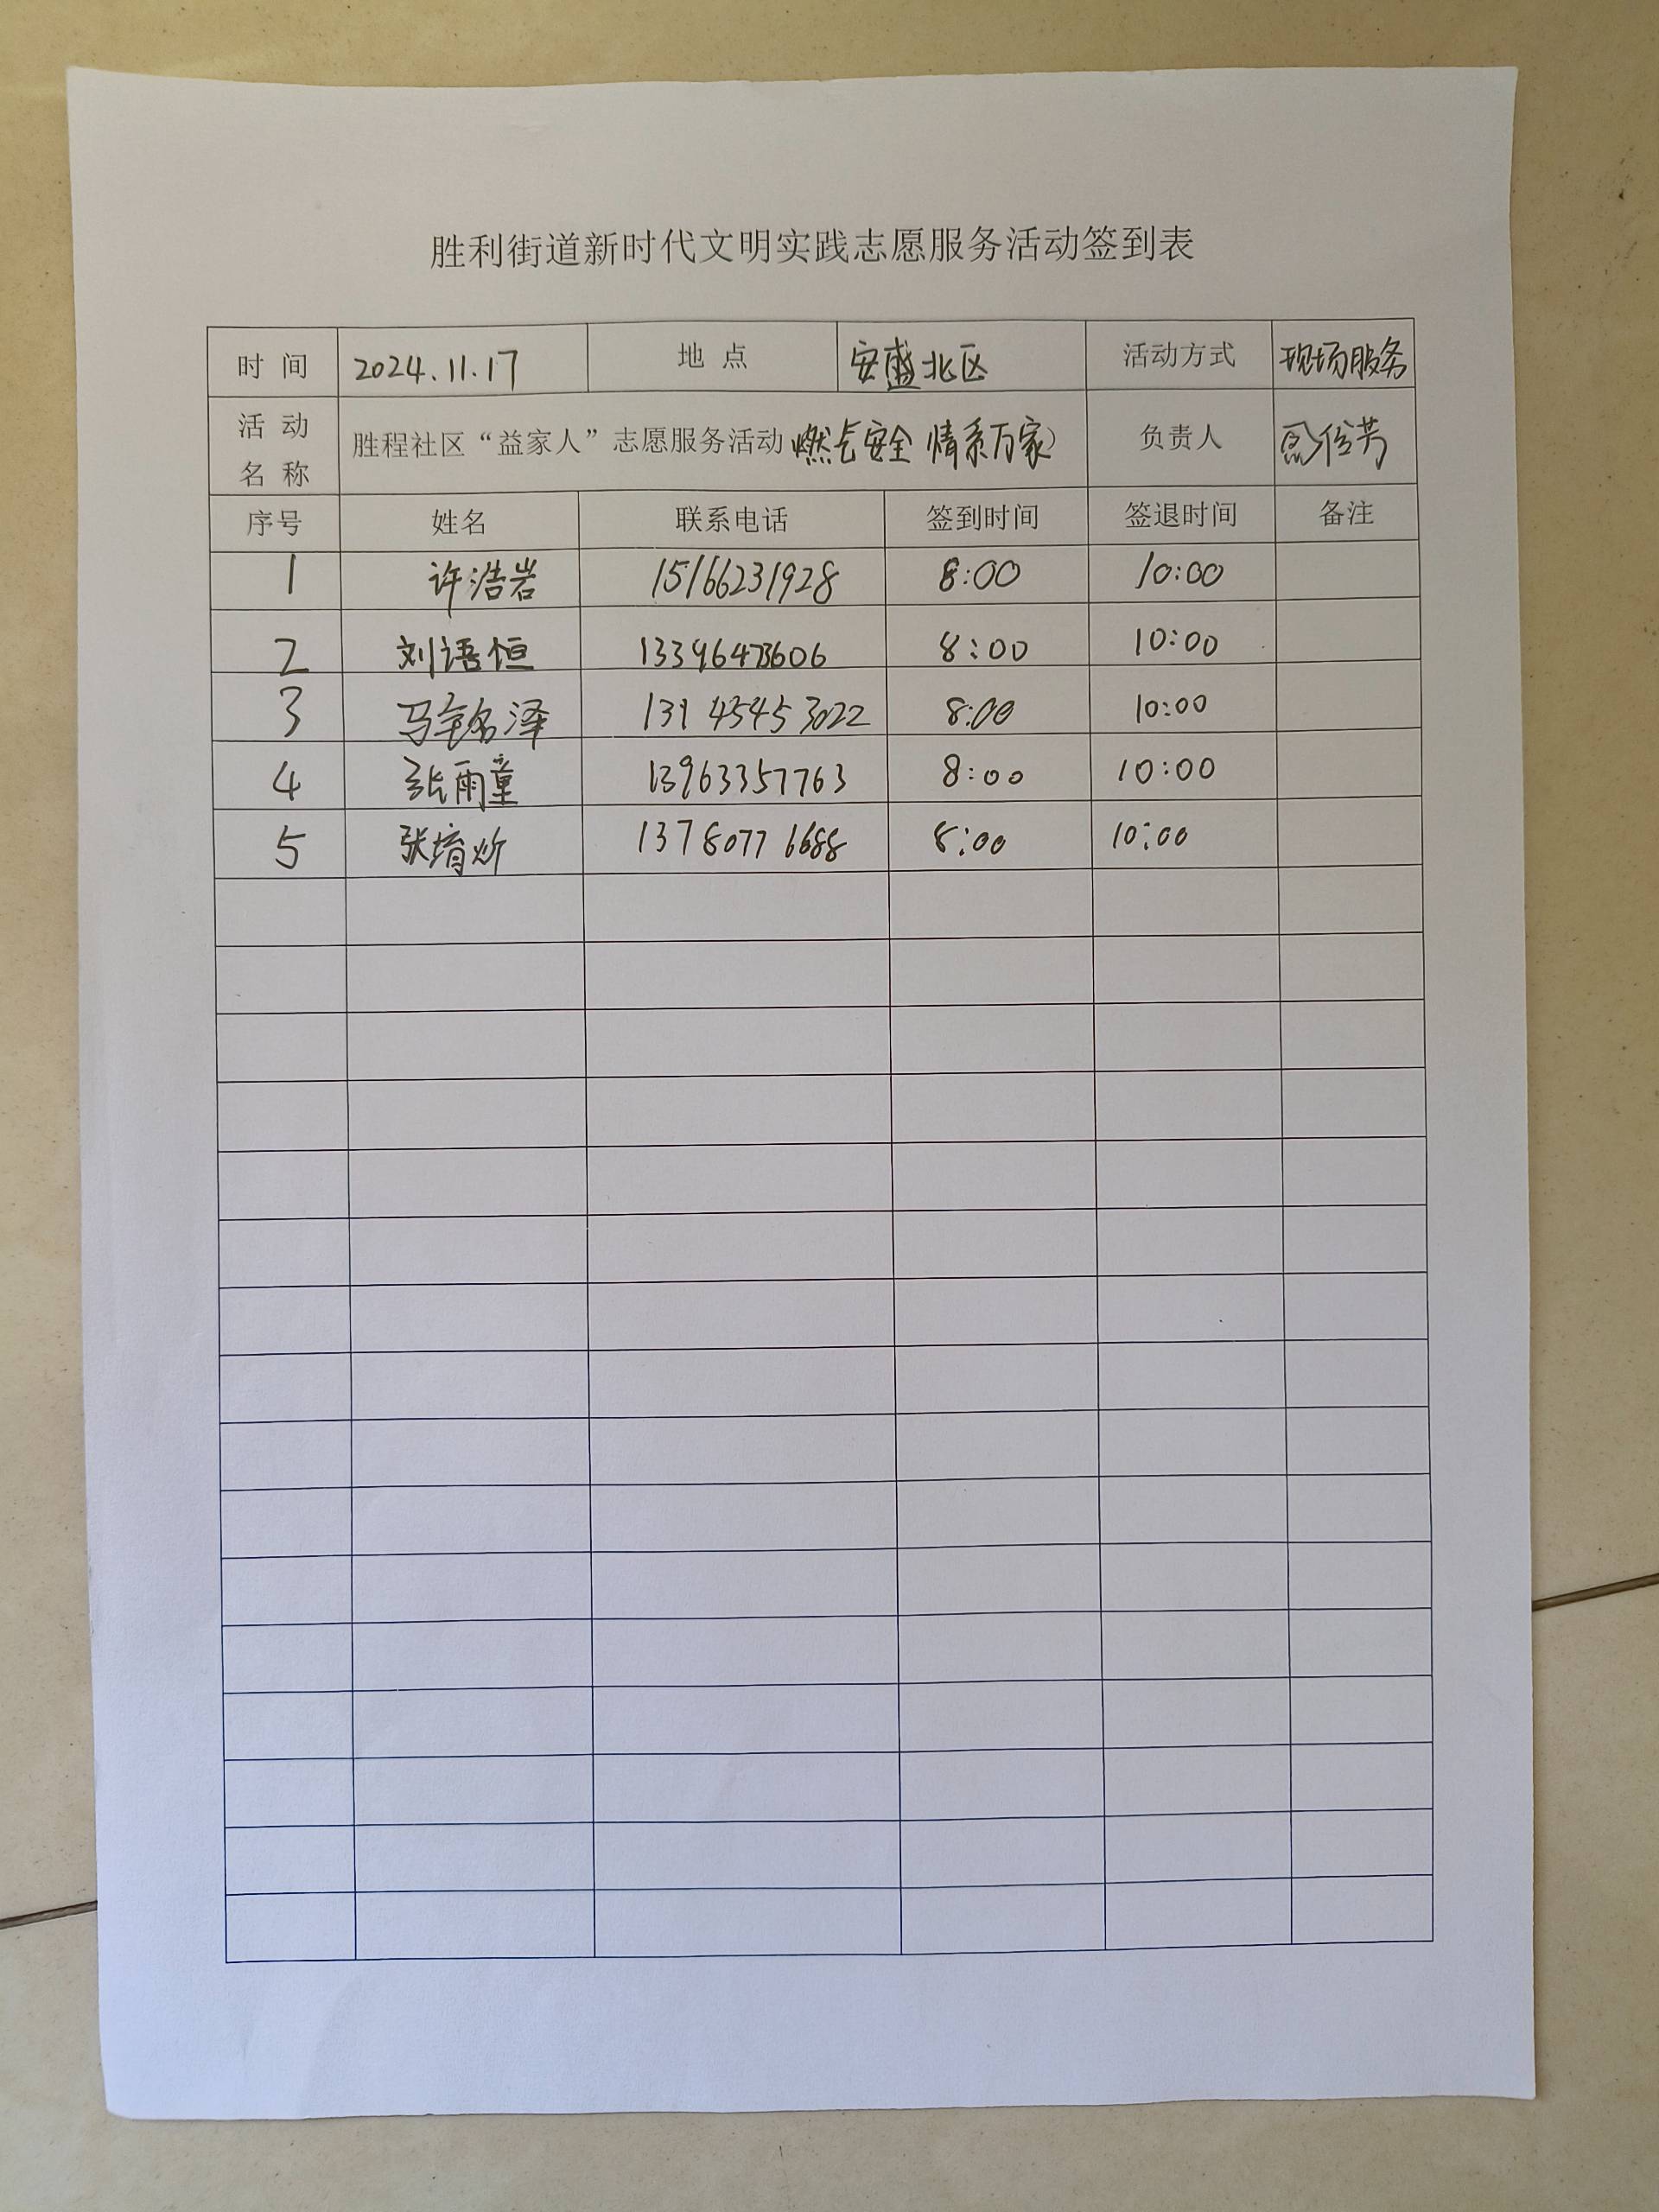 胜利街道新时代文明实践志愿服务活动签到表
时 间 2024.11.17 地 点 安盛北区 活动方式 现场服务
活 动
名 称 胜程社区“益家人”志愿服务活动 燃气安全 情系万家) 负责人
序号 姓名 联系电话 签到时间 签退时间 备注
1 许浩岩 15166231928 8:00 10:00
2 刘语恒 13396473606 8:00 10:00
3 马铭泽 131 4545 3022 8:00 10:00
4 张雨童 13963357763 8:00 10:00
5 张堉炘 137 8077 1688 8:00 10:00